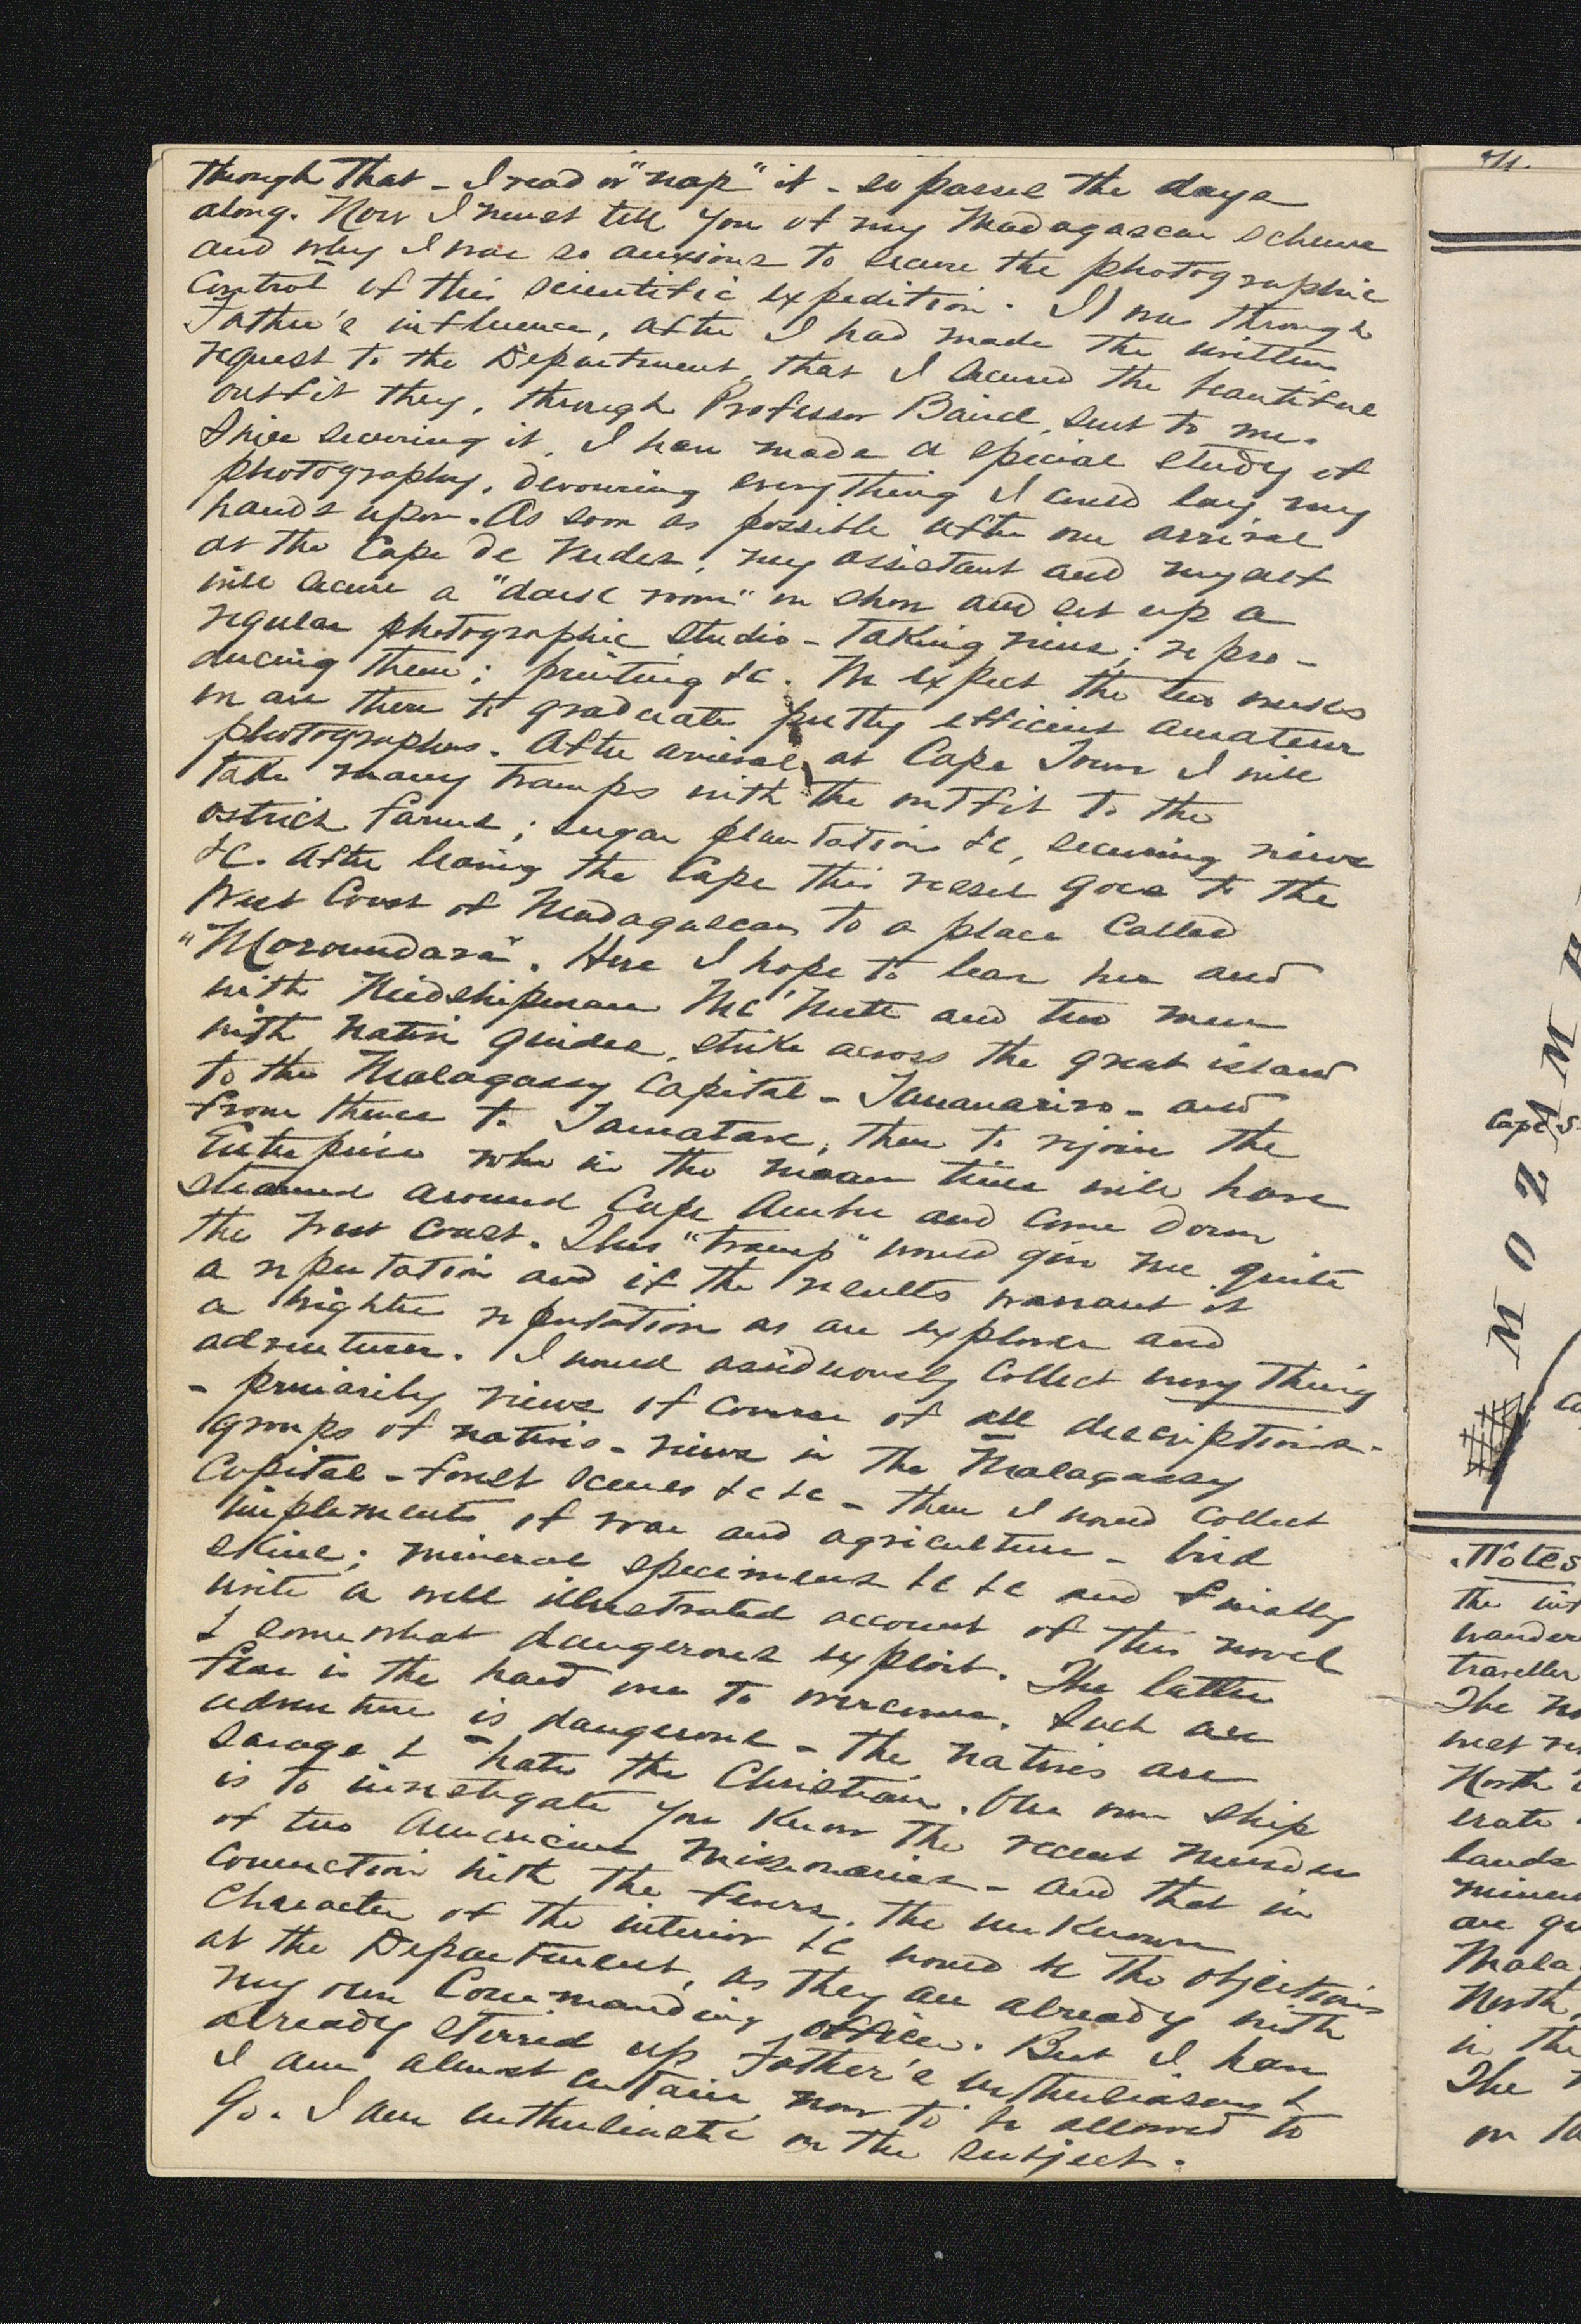 through that - I read or "nap" it - so passes the days
along. Now I must tell you of my Madagascar scheme
and why I was so anxious to secure the photographic
Control of this scientific expedition. It was through
Father's influence, after I had made the written
request to the Department, that I secured the beautiful
outfit they, through Professor Baird, sent to me.
Since securing it, I have made a special study of
photography, devouring everything I could lay my
hands upon. As soon as possible after our arrival
at the Cape de Verdes, my assistant and myself
will secure a "dark room" on shore and set up a
regular photographic studio - taking views; repro-
ducing them; printing &c. We expect the two weeks
we are there to graduate pretty efficient amateur
photographers. After arrival at Cape Town I will
take many tramps with the outfit to the
ostrich farms; sugar plantation &c, securing views
&c. After leaving the Cape this vessel goes to the
West Coast of Madagascar to a place called
"Moroundava". Here I hope to leave her and
with Midshipman Mc'Nutt and two men
with native guides, strike across the great island
to the Malagassy Capital - Tananarivo - and
from thence to Tamatave, there to rejoin the
Enterprise who in the mean time will have
steamed around Cape Ambre and come down
the West Coast. This "tramp" would give me quite
a reputation and if the results warrant it
a brighter reputation as an explorer and
adventurer. I would assiduously collect everything
- primarily views of course of all descriptions -
groups of natives - views in the Malagassy
Capital - forest scenes &c &c - then I would collect
implements of war and agriculture - bird
skins; mineral specimens &c &c and finally
write a well illustrated account of this novel
& somewhat dangerous exploit. The latter
fear is the hard one to overcome. Such an
adventure is dangerous - the natives are
savage & hate the Christian. Our own ship
is to investigate you know the recent murder
of two American Missionaries - and that in
connection with the fevers, the unknown
Character of the interior &c would be the objections
at the Department, as they are already with
my own Commanding Officer. But I have
already stirred up Father's enthusiasm &
I am almost certain now to be allowed to
go. I am enthusiastic on the subject.
M O Z A M B
Cape S
Notes
the int
wander
traveller
The
North
erate
lands
miner
are
Mala
North
in the
The
on